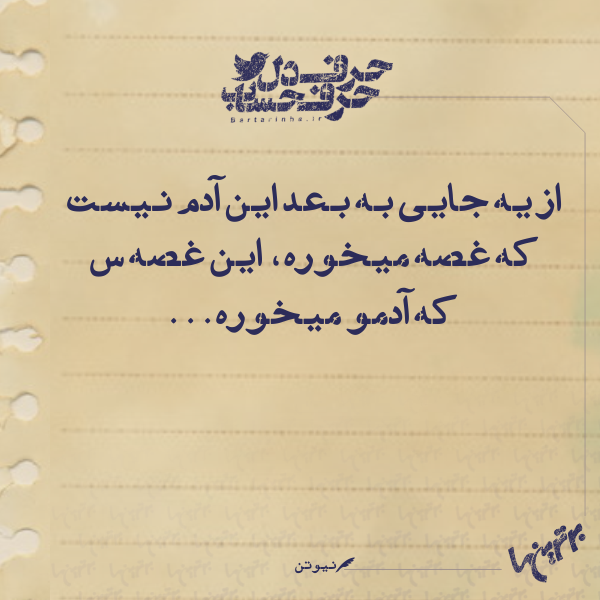 حرف دل
حرف حساب
Bartarinha.ir
از یه جایی به بعد این آدم نیست
که غصه میخوره، این غصه س
که آدمو میخوره...
نیوتن
برترین ها